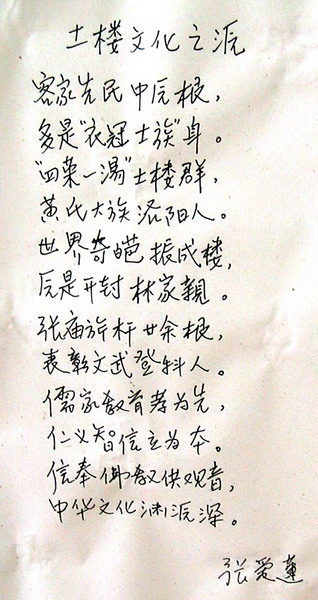 土楼文化之源
客家先民中原根，
多是"衣冠士族"身。
"四菜一湯"土楼群，
黄氏大族洛阳人。
世界奇葩振成楼，
原是开封林家親。
张庙旂杆廿余根，
表彰文武登科人。
儒家教育孝为先，
仁义智信立为本。
信奉佛教供观音，
中华文化渊源深。
张爱蓮